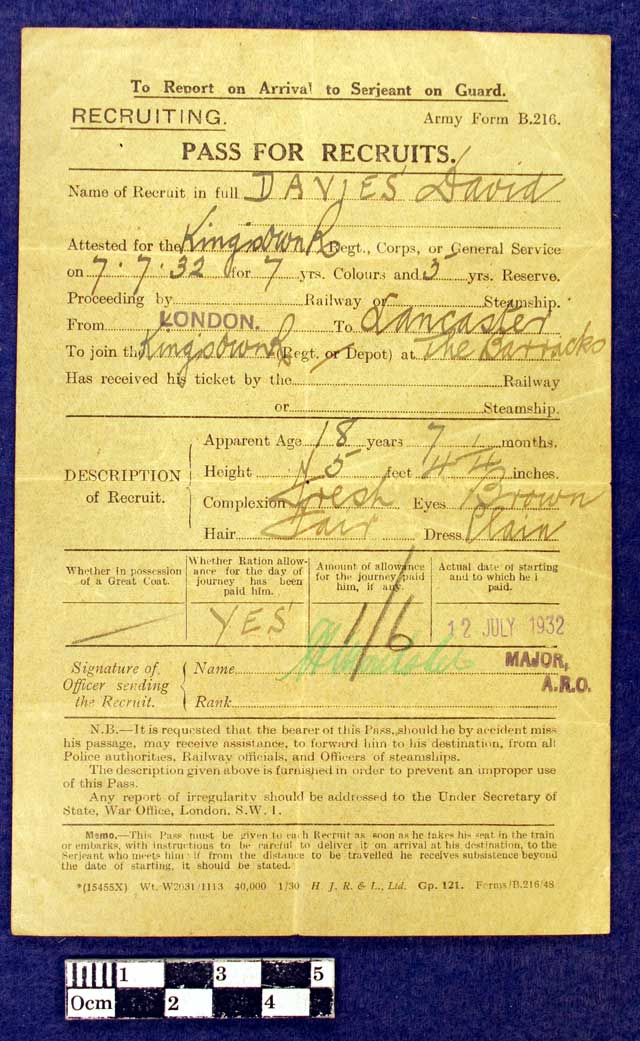 To Report on Arrival to Serjeant on Guard.
RECRUITING. Army Form B.216.
PASS FOR RECRUITS.
Name of Recruit in full DAVIES David
Attested for the Kingsown R Regt., Corps, or General Service
on 7.7.32 for 7 yrs. Colours and 5 yrs. Reserve.
Proceeding by Railway or Steamship.
From LONDON. To Lancaster
To join the Kingsown R (Regt. or Depot) at The Barracks
Has received his ticket by the Railway
or Steamship.
DESCRIPTION of Recruit.
Apparent Age 18 years 7 months.
Height 5 feet 4 1/4 inches.
Complexion Fresh Eyes Brown
Hair Fair Dress Plain
Whether in possession of a Great Coat.
Whether Ration allow-
ance for the day of
journey has been
paid him.
Amount of allowance
for the journey paid
him, if any.
Actual date of starting
and to which he i
paid.
YES 1/6 12 JULY 1932
Signature of
Officer sending
the Recruit.
Name
MAJOR,
A.R.O.
Rank
N.B.—It is requested that the bearer of this Pass, should he by accident miss
his passage, may receive assistance, to forward him to his destination, from all
Police authorities, Railway officials, and Officers of steamships.
The description given above is furnished in order to prevent an improper use
of this Pass.
Any report of irregularity should be addressed to the Under Secretary of
State, War Office, London, S.W.1.
Memo.—This Pass must be given to each Recruit as soon as he takes his seat in the train
or embarks, with instructions to be careful to deliver it on arrival at his destination, to the
Serjeant who meets him: if from the distance to be travelled he receives subsistence beyond
the date of starting, it should be stated.
*(15455X) Wt. W2031/1113 40,000 1/30 H. J. R. & L., Ltd. Gp. 121. Forms/B.216/48
1 3 5
0cm 2 4